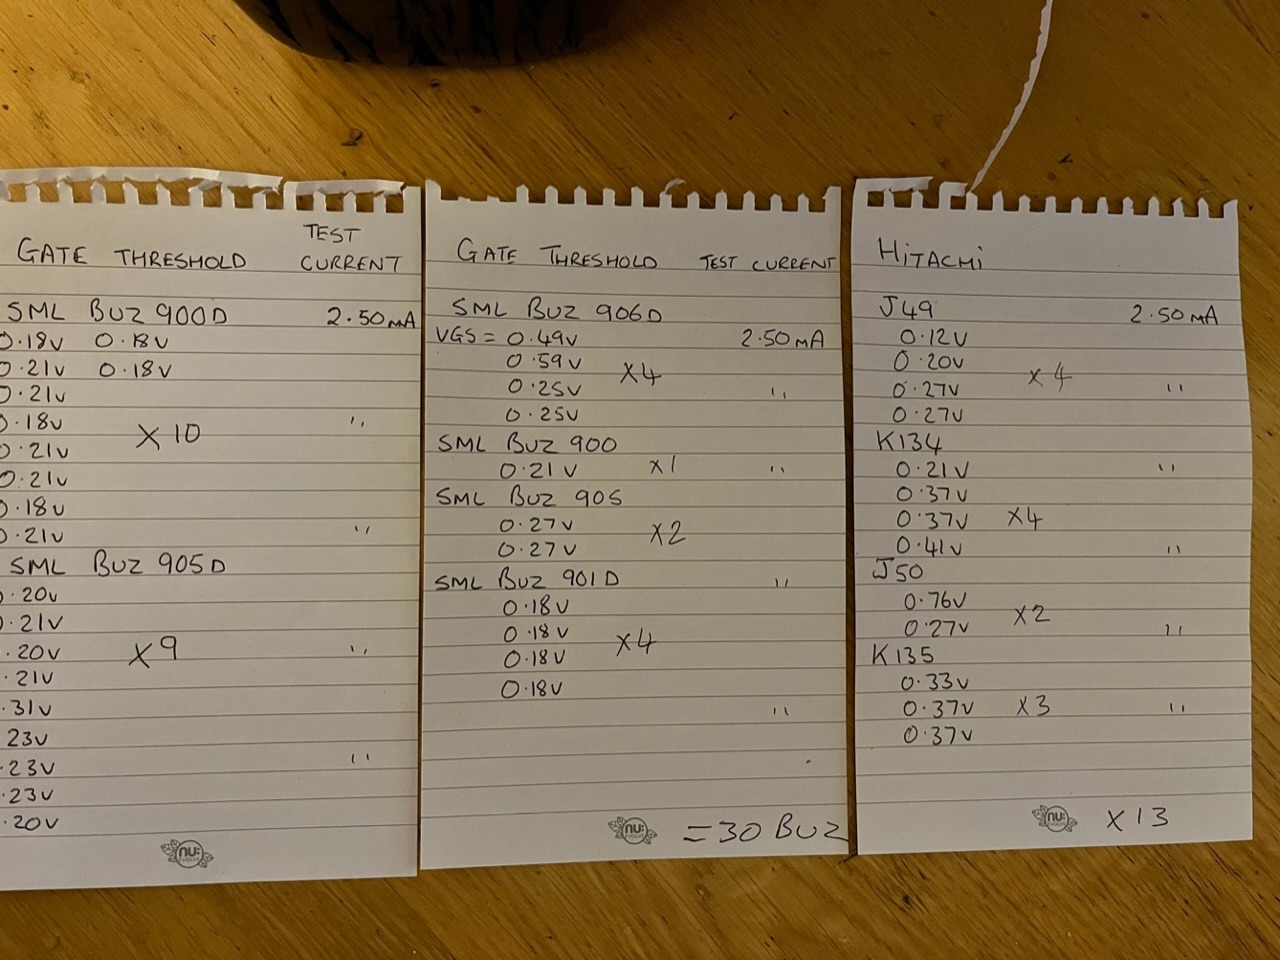 GATE THRESHOLD TEST CURRENT
SML BUZ 900D 2.50mA
0.18V 0.18V
0.21V 0.18V
0.21V
0.18V "
X10
0.21V
0.21V
0.18V
0.21V "
SML BUZ 905D
0.20V
0.21V
.20V X9 "
.21V
.31V
23V
.23V "
.23V
.20V
nu:
GATE THRESHOLD TEST CURRENT
SML BUZ 906D
VGS = 0.49V 2.50mA
0.59V X4
0.25V "
0.25V
SML BUZ 900
0.21V X1 "
SML BUZ 905
0.27V X2
0.27V
SML BUZ 901D "
0.18V
0.18V X4
0.18V
0.18V
"
nu:
= 30 BUZ
HITACHI
J49 2.50mA
0.12V
0.20V X4
0.27V "
0.27V
K134
0.21V "
0.37V
0.37V X4
0.41V "
J50
0.76V X2
0.27V "
K135
0.33V
0.37V X3 "
0.37V
nu:
X13